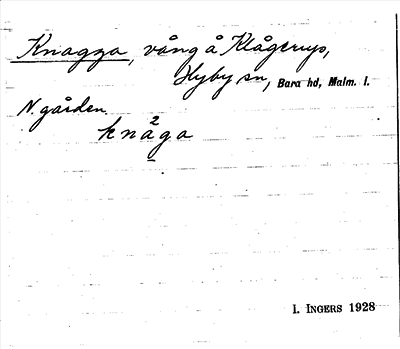 Knagga, vång å Klågerup,
Hyby sn, Bara hd, Malm. l.
N. gården.
knå²ga
I. INGERS 1928